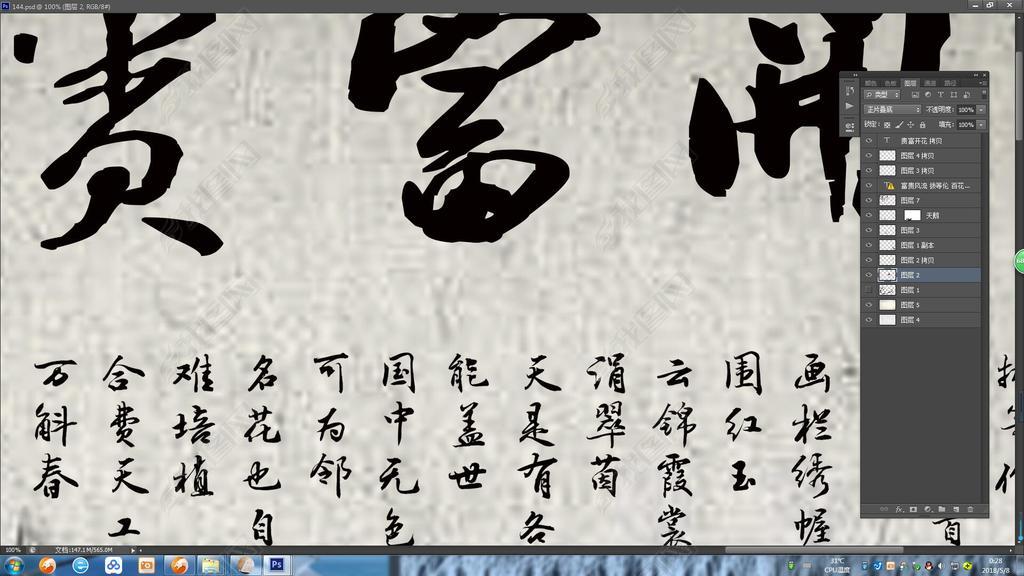 144.psd @ 100% (图层 2, RGB/8#)
開
富
貴
画栏绣幄
围红玉
云锦霞裳
涓翠茵
天是有各
能盖世
国中无色
可为邻
名花也自
难培植
合费天工
万斛春
百
图层
类型
正片叠底 不透明度: 100%
锁定: 填充: 100%
贵富开花 拷贝
图层 4 拷贝
图层 3 拷贝
图层 7
天鹅
图层 3
图层 1 副本
图层 2 拷贝
图层 2
图层 1
图层 5
图层 4
100% 文档:147.1M/565.0M
31℃
CPU温度
0:28
2018/5/8